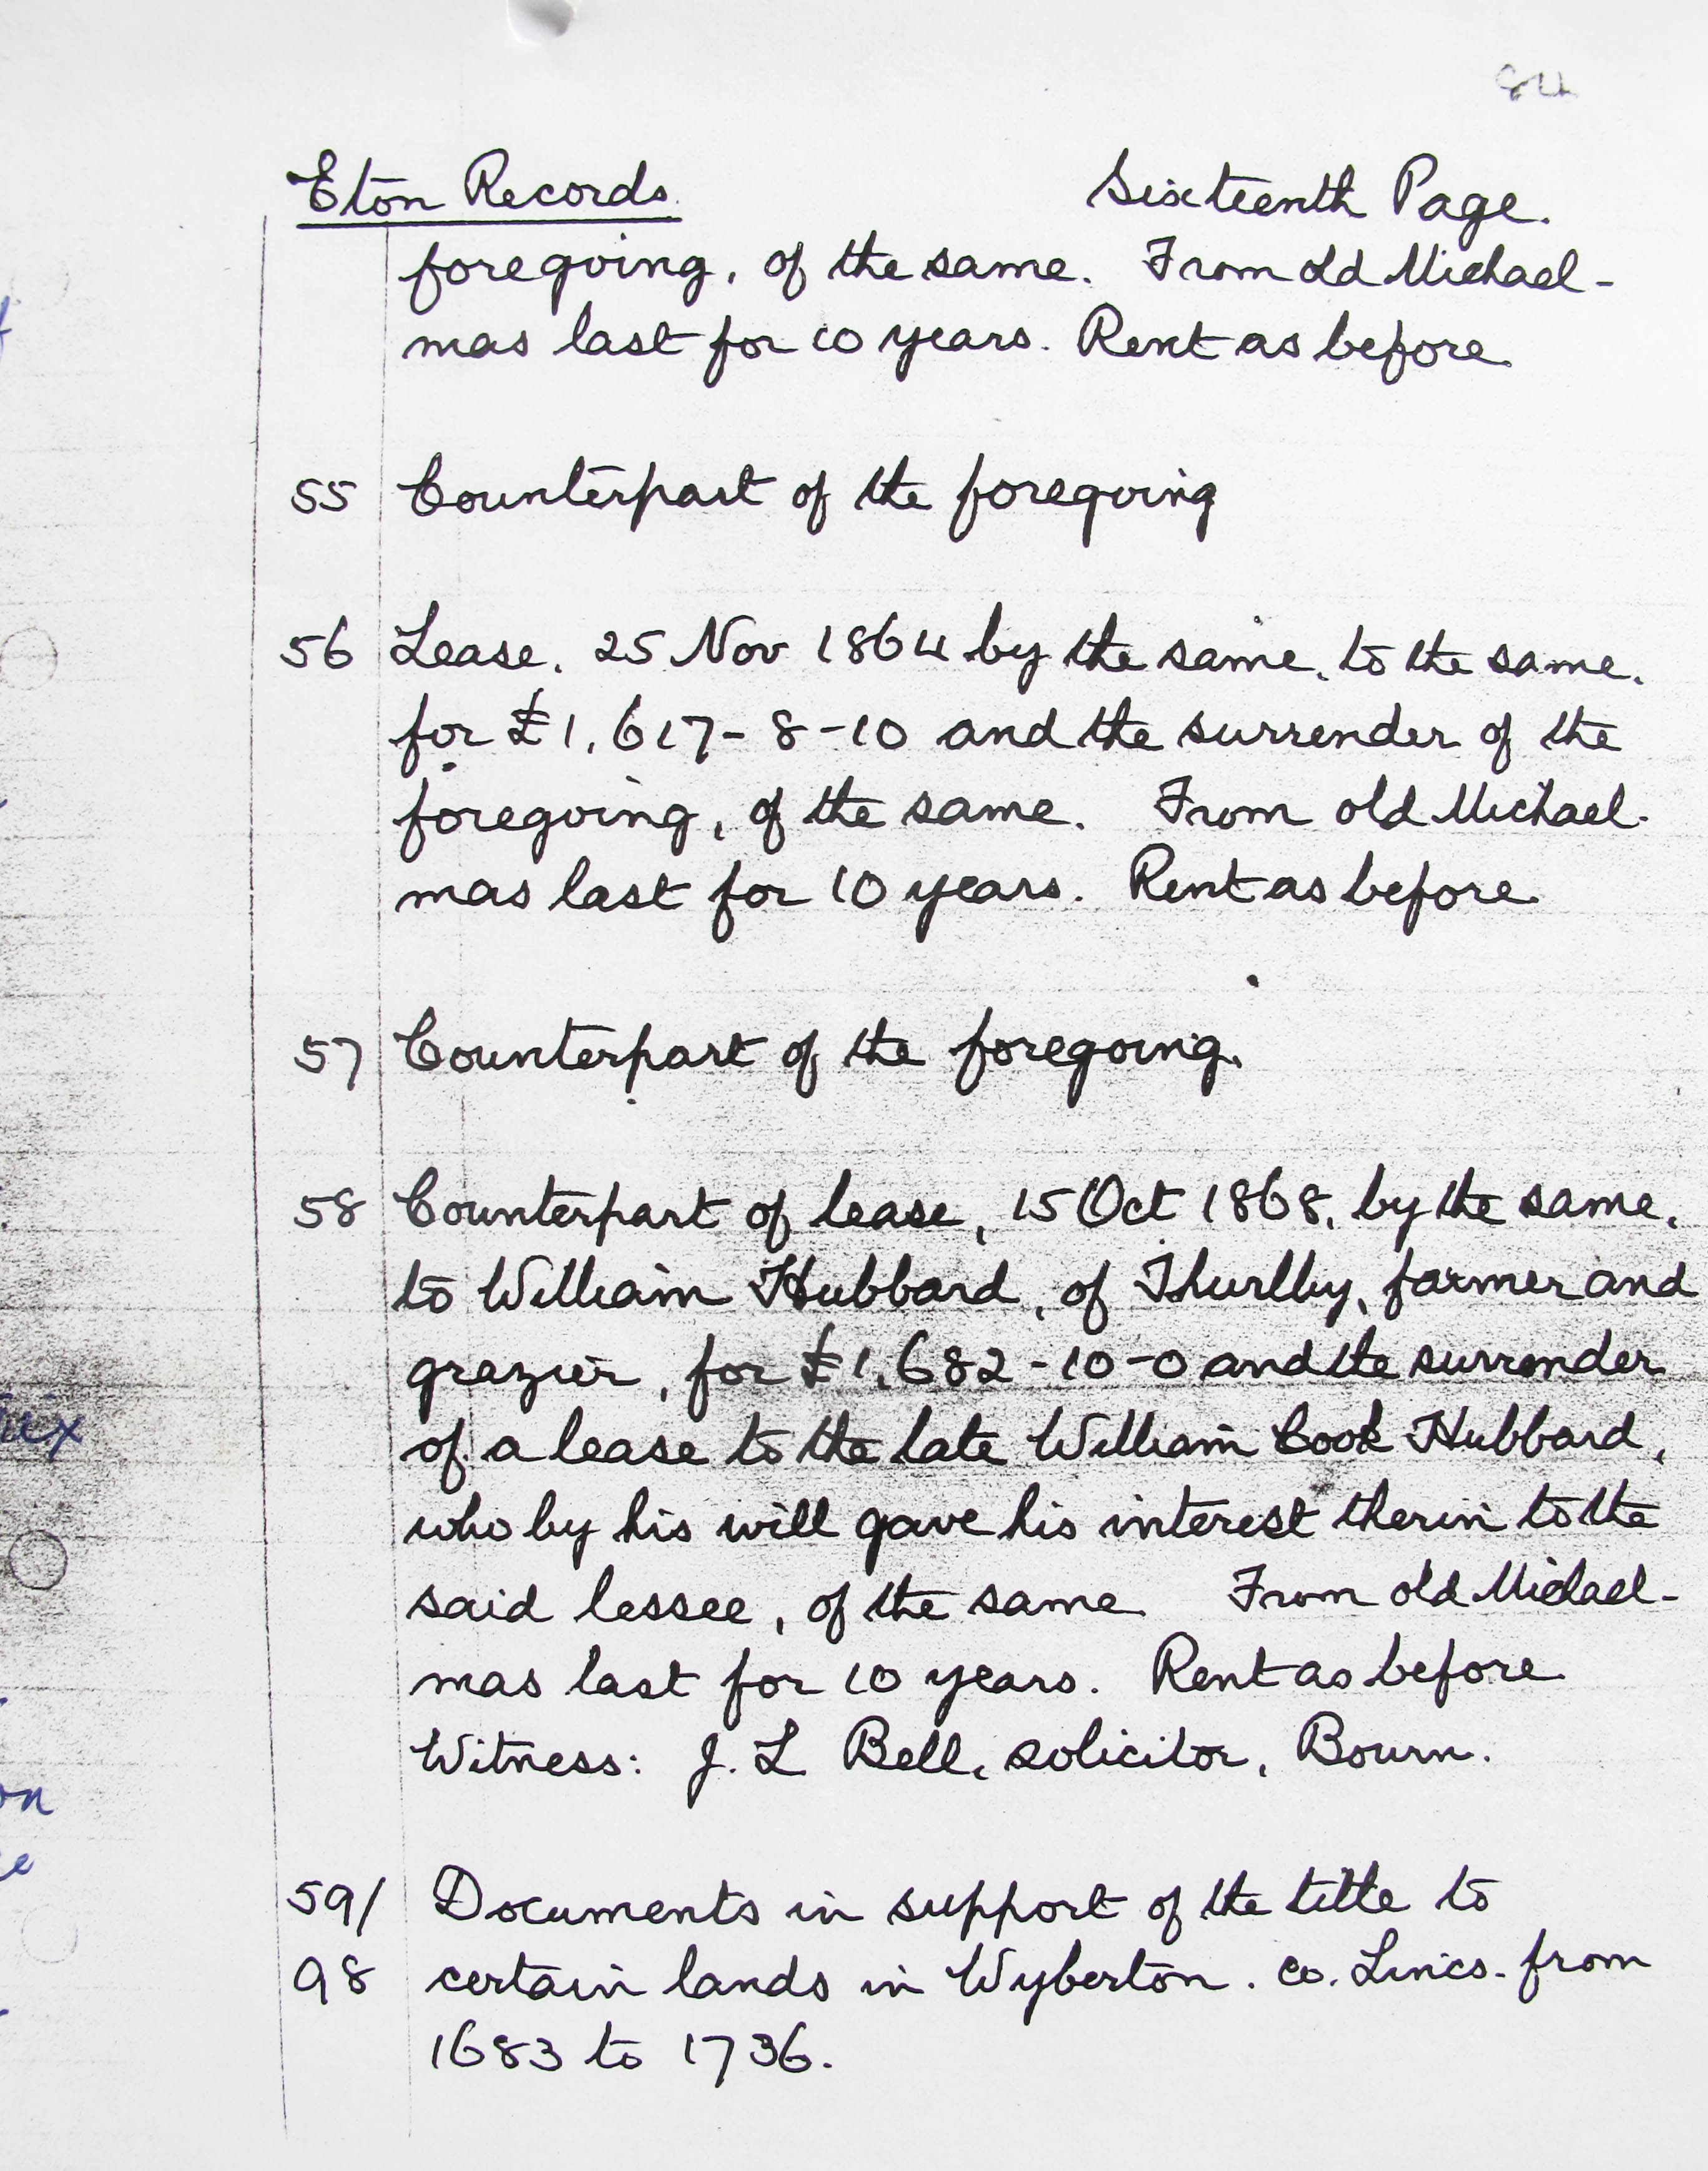 84
Eton Records. Sixteenth Page.
foregoing, of the same. From old Michael-
mas last for 10 years. Rent as before
55 Counterpart of the foregoing
56 Lease. 25 Nov 1864 by the same, to the same,
for £1,617-8-10 and the surrender of the
foregoing, of the same. From old Michael-
mas last for 10 years. Rent as before
57 Counterpart of the foregoing.
58 Counterpart of lease, 15 Oct 1868, by the same,
to William Hubbard, of Thurlby, farmer and
grazier, for £1,682-10-0 and the surrender
of a lease to the late William Cook Hubbard,
who by his will gave his interest therin to the
said lessee, of the same From old Michael-
mas last for 10 years. Rent as before
Witness: J. L Bell, solicitor, Bourn.
59/ Documents in support of the title to
98 certain lands in Wyberton. co. Lincs. from
1683 to 1736.